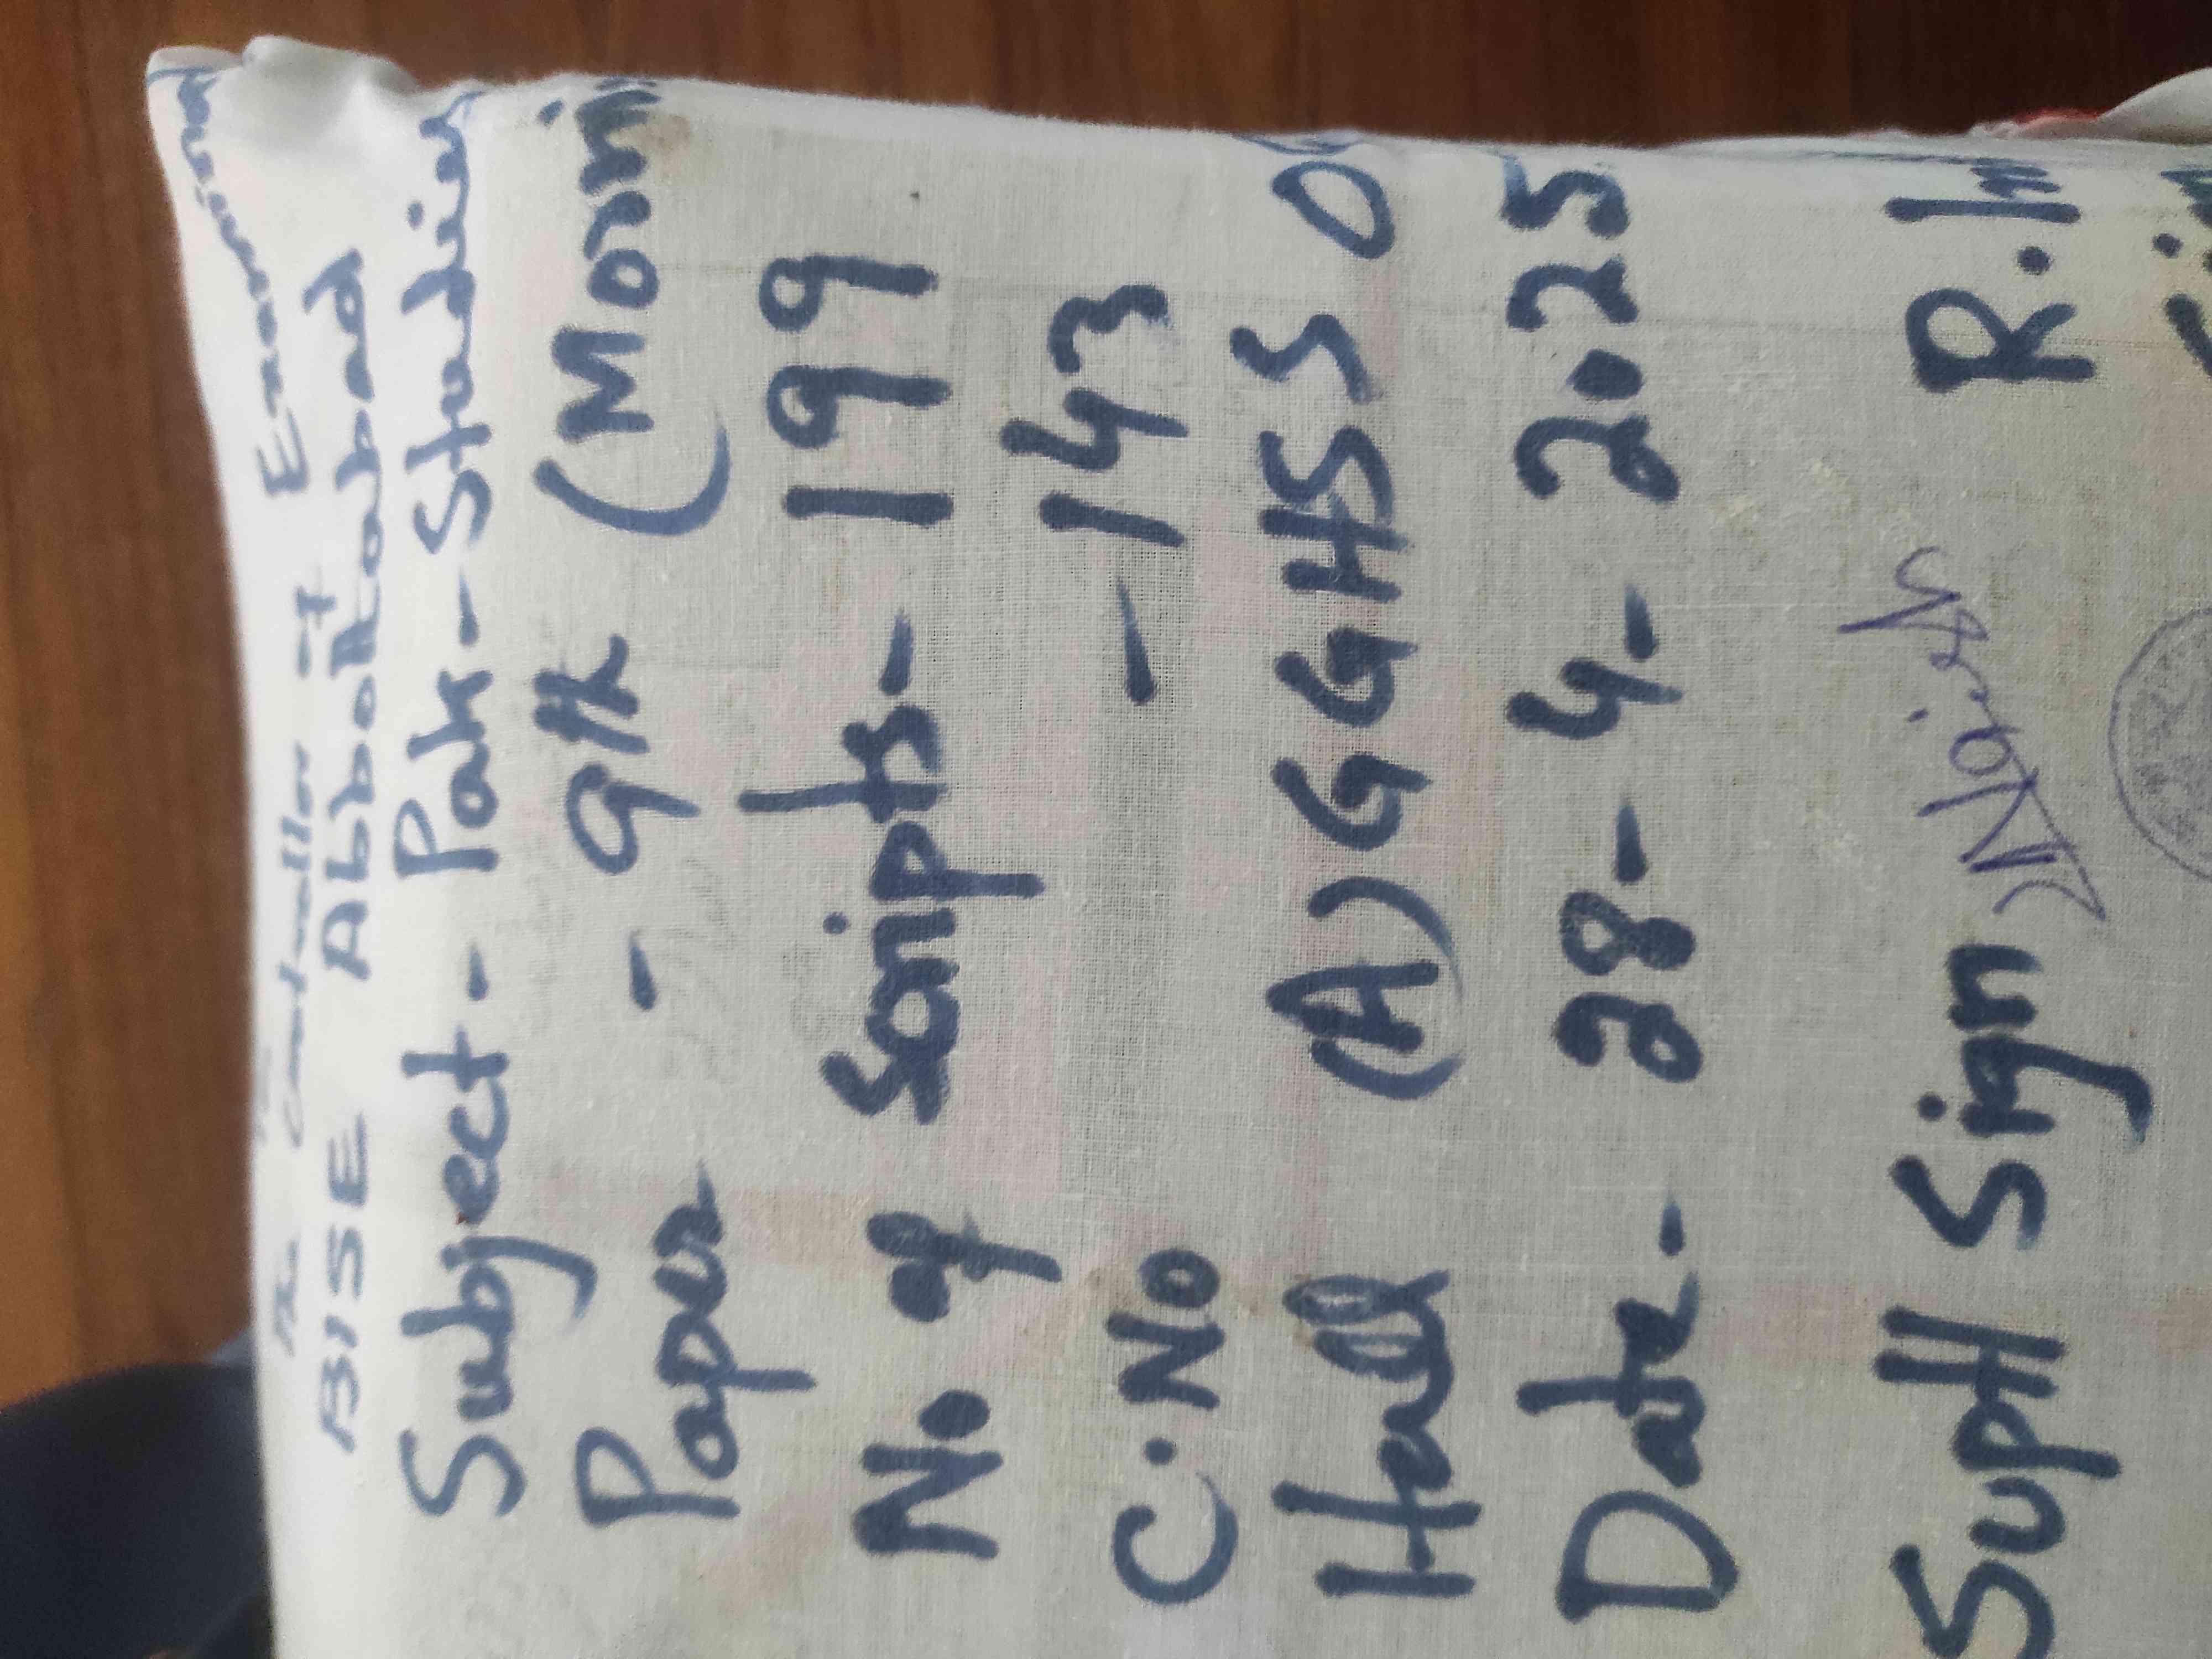 Controller of Examinations
BISE Abbottabad
Subject - Pak-Studies
Paper - 9th (Morni
No of Scripts - 199
C. No - 143
Hall (A) GGHSS
Date - 28-4-2.25
SupH Sign R.I